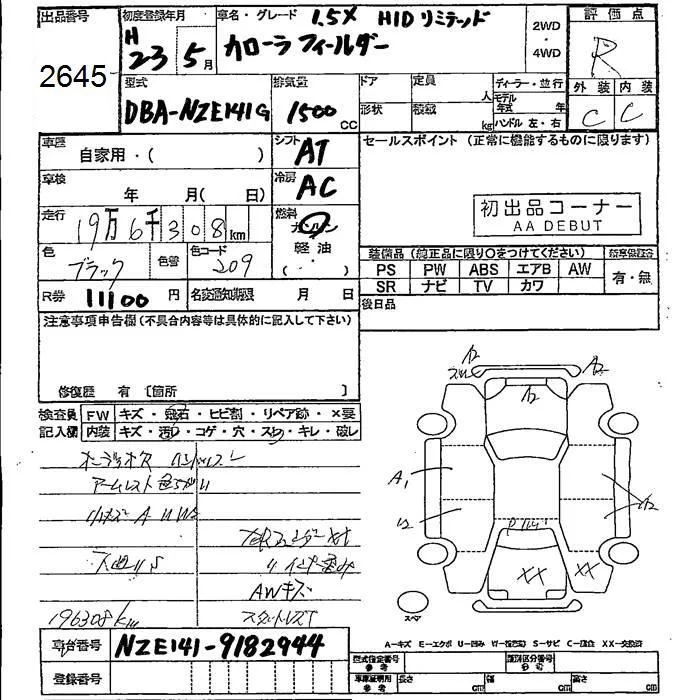 出品番号
2645
初度登録年月
H 23 5月
車名・グレード 1.5X HIDリミテッド
カローラフィールダー
2WD
・
4WD
評価点
R
外装 内装
C C
型式
DBA-NZE141G
排気量
1500 cc
ドア 定員 人
形状 積載 kg
ディーラー・並行
モデル年式 年
ハンドル 左・右
車歴
自家用・( )
シフト
AT
車検
年 月( 日)
冷房
AC
走行
19万6千308km
燃料
ガソリン
軽油
( ・ )
色
ブラック
色替
色コード
209
R券 11100 円
名変通知期限 月 日
セールスポイント (正常に機能するものに限ります)
初出品コーナー
AA DEBUT
装備品 (純正品に限り○をつけてください)
新車保証書
PS PW ABS エアB AW
有・無
SR ナビ TV カワ
後日品
注意事項申告欄(不具合内容等は具体的に記入して下さい)
修復歴 有 〔箇所 〕
検査員 FW キズ・飛石・ヒビ割・リペア跡・×要
記入欄 内装 キズ・汚レ・コゲ・穴・スレ・キレ・破レ
アームレスト
AWキズ
196308km
A2
A2
A2
A1
U2
A2
XX
XX
スペア
A-キズ E-エクボ U-凹み W-修理跡 S-サビ C-腐食 XX-交換済
車台番号 NZE141-9182944
登録番号
型式指定番号
参考
類別区分番号
参考
車庫証明用
参考
長さ cm 幅 cm 高さ cm